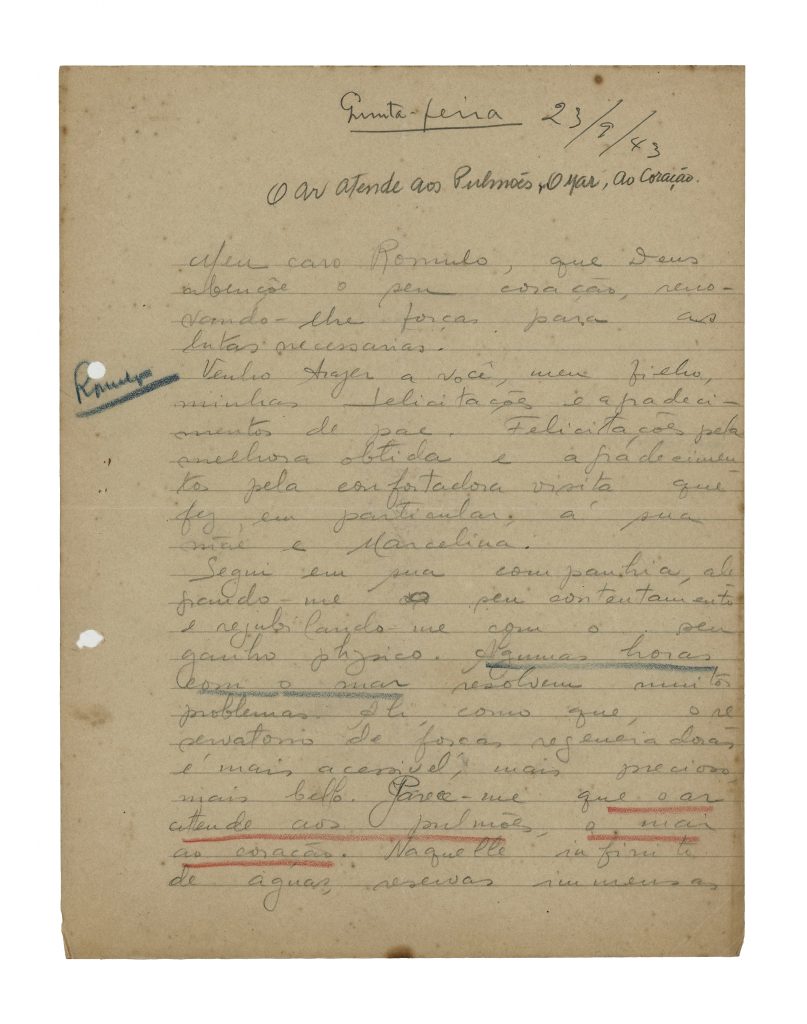 Quinta-feira 23/9/43
O ar atende aos Pulmões, O mar, ao Coração.
Meu caro Romulo, que Deus
abençôe o seu coração, reno-
vando-lhe forças para as
lutas necessarias.
Romulo
Venho trazer a você, meu filho,
minhas felicitações e agradeci-
mentos de pae. Felicitações pela
melhora obtida e agradecimen-
tos pela confortadora visita que
fez, em particular, á sua
mãe e Marcelina.
Segui em sua companhia, ale
grando-me o seu contentamento
e rejubilando-me com o seu
ganho physico. Algumas horas
com o mar resolvem muitos
problemas. Ali, como que, o re
servatorio de forças regeneradoras
é mais acessivel, mais precioso,
mais bello. Parece-me que o ar
attende aos pulmões, o mar
ao coração. Naquelle infinito
de aguas, reservas immensas